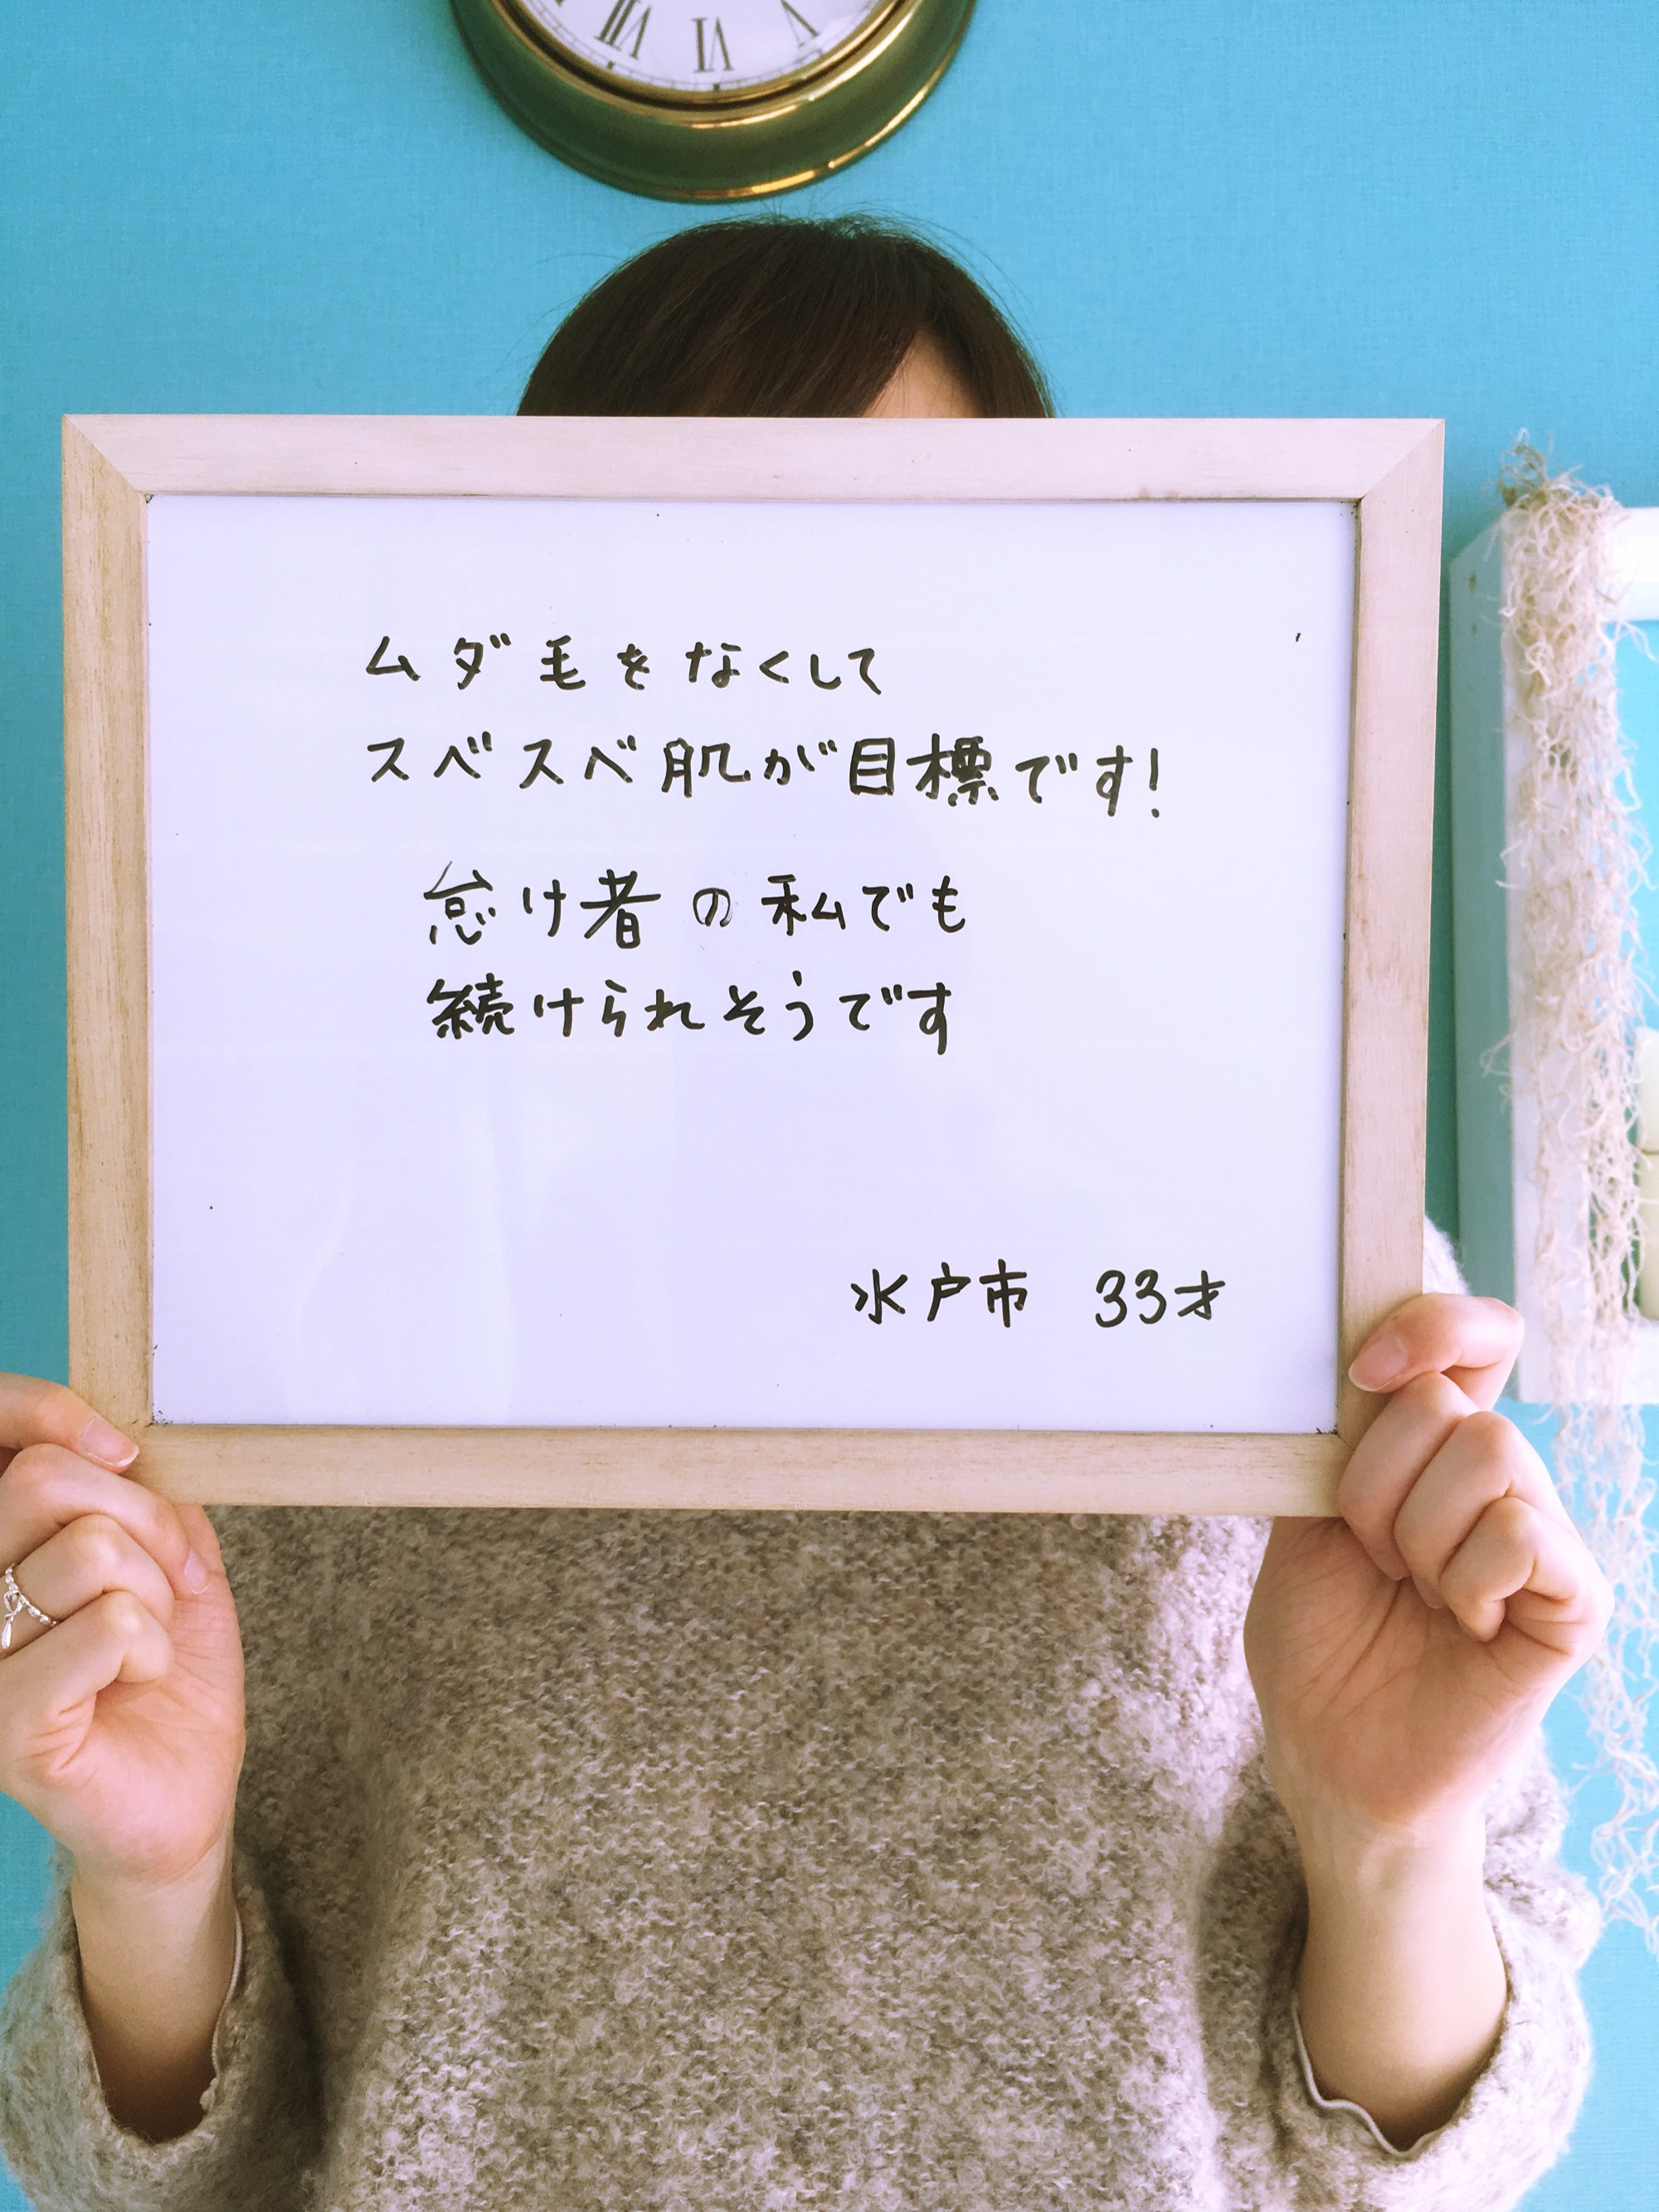 VII VI V
ムダ毛をなくして
スベスベ肌が目標です!
怠け者の私でも
続けられそうです
水戸市 33才